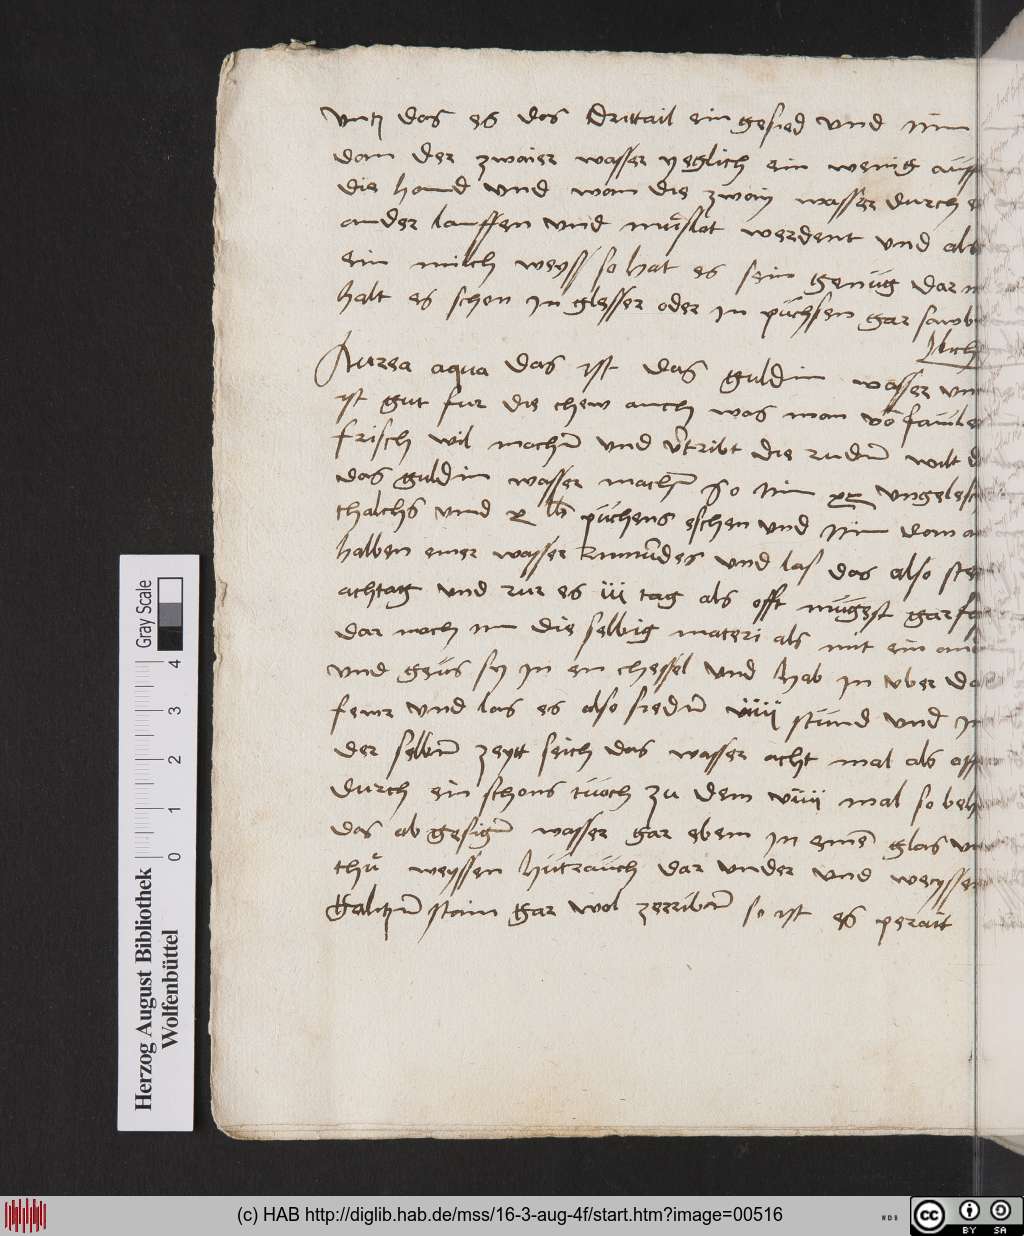 untz das es das drittail ein gesied und nim
dan der zwaier wasser yeglich ein wenig auff
die hannd und wan die zway wasser durch
ander lauffen und werdent und als
ein milch weyss so hat es sein genug dar
halt es schon in glesser oder in püchsen gar sawb
lich
Aurea aqua das ist das guldin wasser und
ist gut fur die auch was man võ faule
frisch wil machen und vertribt die ruden wilt
das guldin wasser machen so nim xx ungelesch
chalchs und x lb püchens eschen und nim dan
halben emer wasser und las das also sten
achtag und rur es iii tag als offt mügest gar
dar nach nim die selbig materi als mit ein and
und geüs sy in ein chessel und hab in uber da
fewr und las es also sieden viiii stund und in
der selben zeytt seich das wasser acht mal als
durch ein schons tuoch zu dem viiii mal so beh
das ab gesigen wasser gar eben in einem glas und
thů weyssen hütrauch dar under und weyssen
Galitzen stain gar wol zerriben so ist es perait
Herzog August Bibliothek
Wolfenbüttel
Gray Scale
0 1 2 3 4
(c) HAB http://diglib.hab.de/mss/16-3-aug-4f/start.htm?image=00516
WDB
cc BY SA